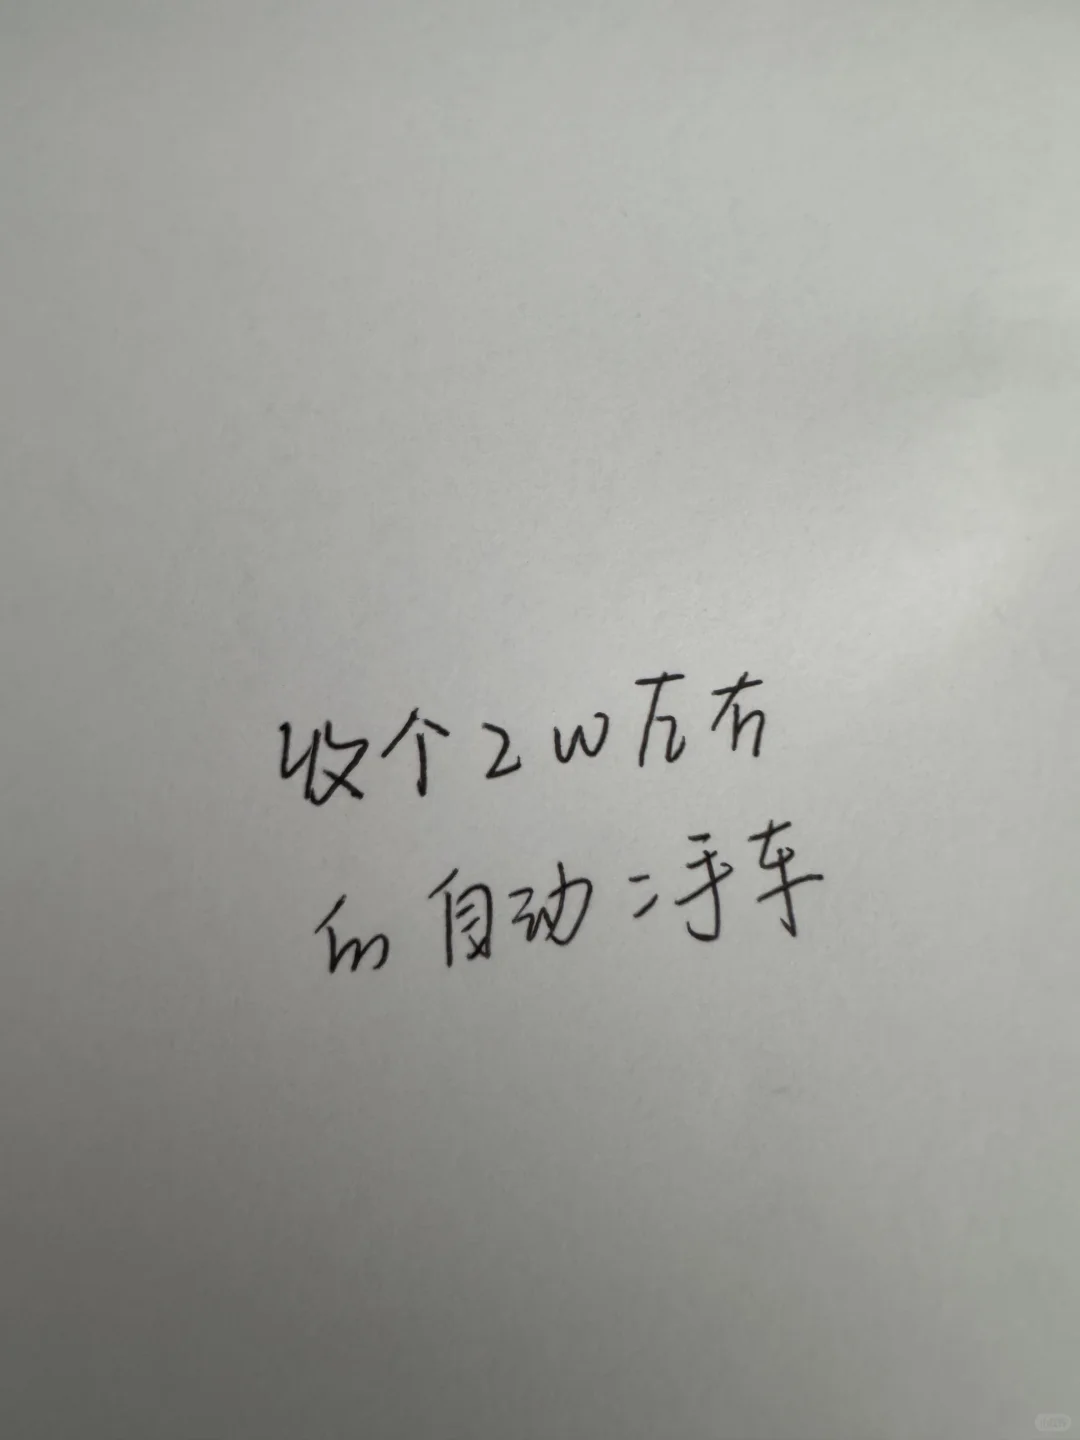 收个2w左右
的自动二手车